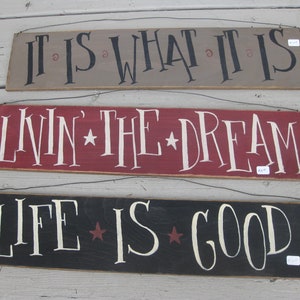 IT IS WHAT IT IS
LIVIN' THE DREAM
LIFE IS GOOD